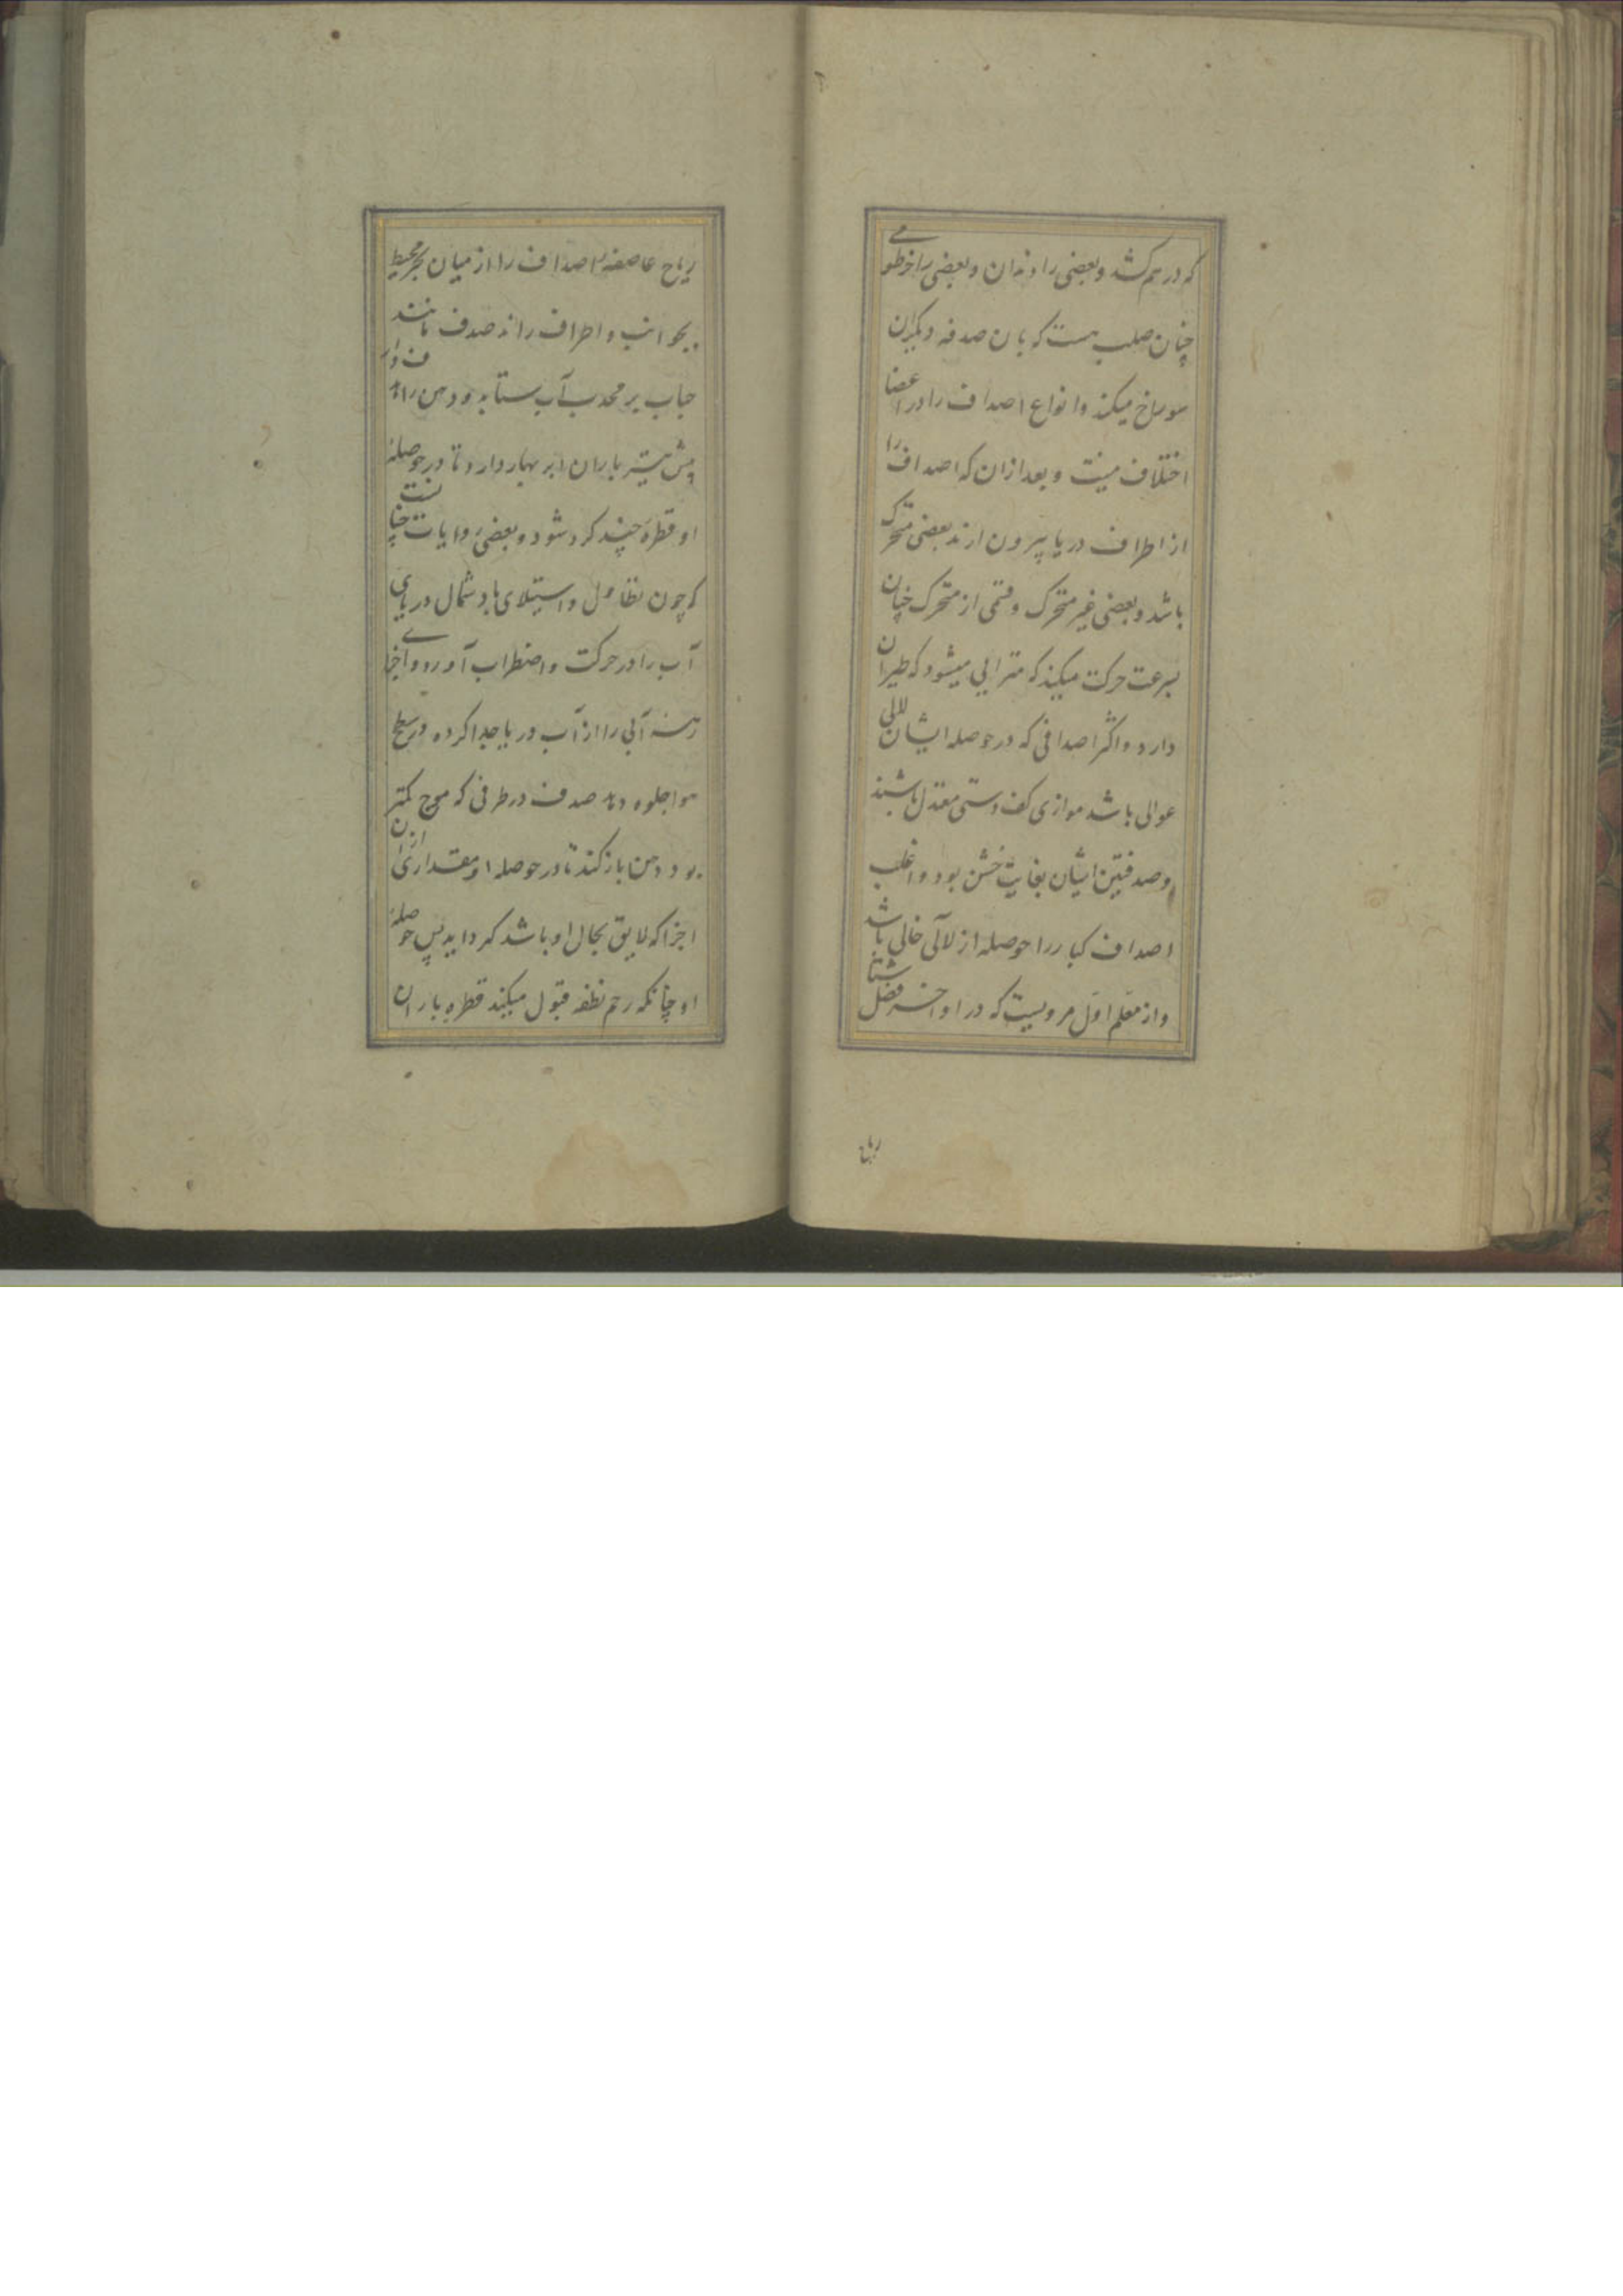 که در هم کشد و بعضی را دندان و بعضی را خرطومی
چنان صلب هست که بان صدفه دیگران
سوراخ میکند و انواع اصداف را در اعضا
اختلاف هست و بعد ازان که اصداف را
از اطراف دریا بیرون ارند بعضی متحرک
باشد و بعضی غیر متحرک و قسمی از متحرک چنان
بسرعت حرکت میکند که مترایی میشود که طیران
دارد و اکثر اصدافی که در حوصله ایشان للالی
عوالی باشد موازی کف دستی معتدل باشند
وصدفتین ایشان بغایت خشن بود و اغلب
اصداف کبار را حوصله از لآلی خالی باشد
و از معلم اوّل مرویست که در اواخر فصل شتا
ریاح
ریاح عاصفه اصداف را از میان بحر محیط
بجوانب و اطراف راند صدف مانند
حباب بر محدب آب ستابد و دهن را
پیش تیر باران ابر بهار دارد تا در حوصلهٔ
او قطرهٔ چند کرد شود و بعضی روایات چنانست
که چون تطاول و استیلای باد شمال دریای
آب را در حرکت و اضطراب آورد و اجزای
رشه آبی را از آب دریا جدا کرده در سطح
هوا جلوه دهد صدف در طرفی که موج کمتر
بود دهن باز کند تا در حوصله او مقداری ازان
اجزا که لایق بحال او باشد کرد اید پس حوصلهٔ
او چنانکه رحم نطفه قبول میکند قطره باران